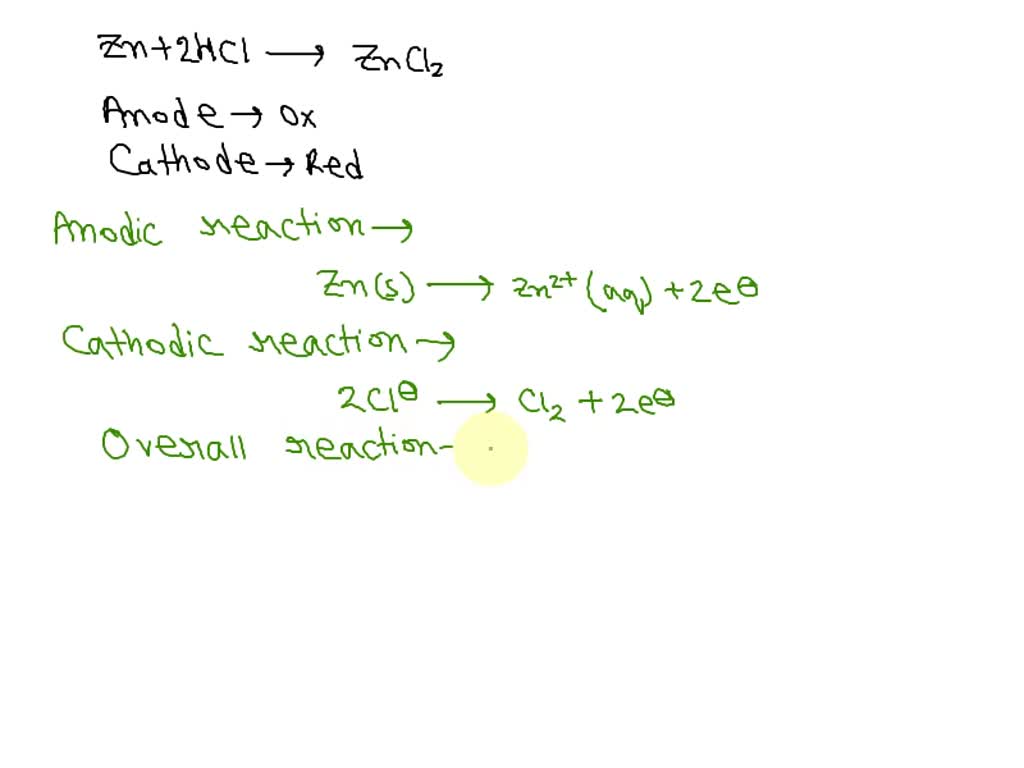 Zn+2HCl → ZnCl₂
Anode → Ox
Cathode → Red
Anodic reaction →
Zn(s) → Zn²⁺(aq) + 2e⊖
Cathodic reaction →
2Cl⊖ → Cl₂ + 2e⊖
Overall reaction-